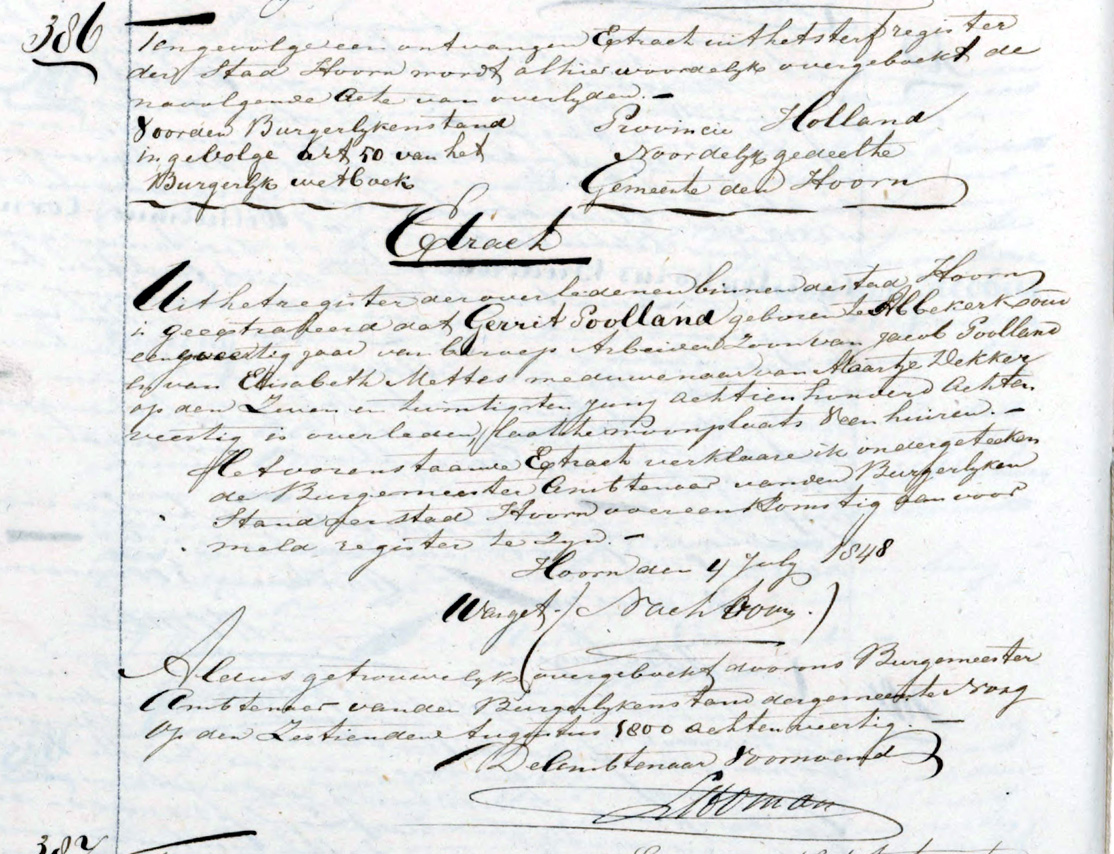 386
Tengevolge een ontvangen Extract uit het sterfregister
der Stad Hoorn wordt alhier woordelyk overgeboekt de
navolgende acte van overlyden. —
Voor den Burgerlyken stand
ingevolge art 50 van het
Burgerlyk wetboek
Provincie Holland
Noordelyk gedeelte
Gemeente den Hoorn
Extract
Uit het register der overledenen binnen de stad Hoorn
is geextraheerd dat Gerrit Poolland geboren te Abbekerk oud
een jaar van beroep Arbeider Zoon van Jacob Poolland
en van Elisabeth Mettes weduwenaar van Maartje Dekker
op den Zeven en twintigsten Juny achtienhonderd achten
veertig is overleden, laatste woonplaats Veenhuizen. —
Het vorenstaande Extract verklaare ik ondergeteeken
de Burgemeester Ambtenaar van den Burgerlyken
Stand der stad Hoorn overeenkomstig aan voor
meld register te zyn. —
Hoorn den 4 July 1848
Was get. ( )
Aldus getrouwelyk overgeboekt door ons Burgemeester
Ambtenaar van den Burgerlyken stand der gemeente Norg
Op den Zestienden Augustus 1800 achtenveertig —
De Ambtenaar Voornoemd
387